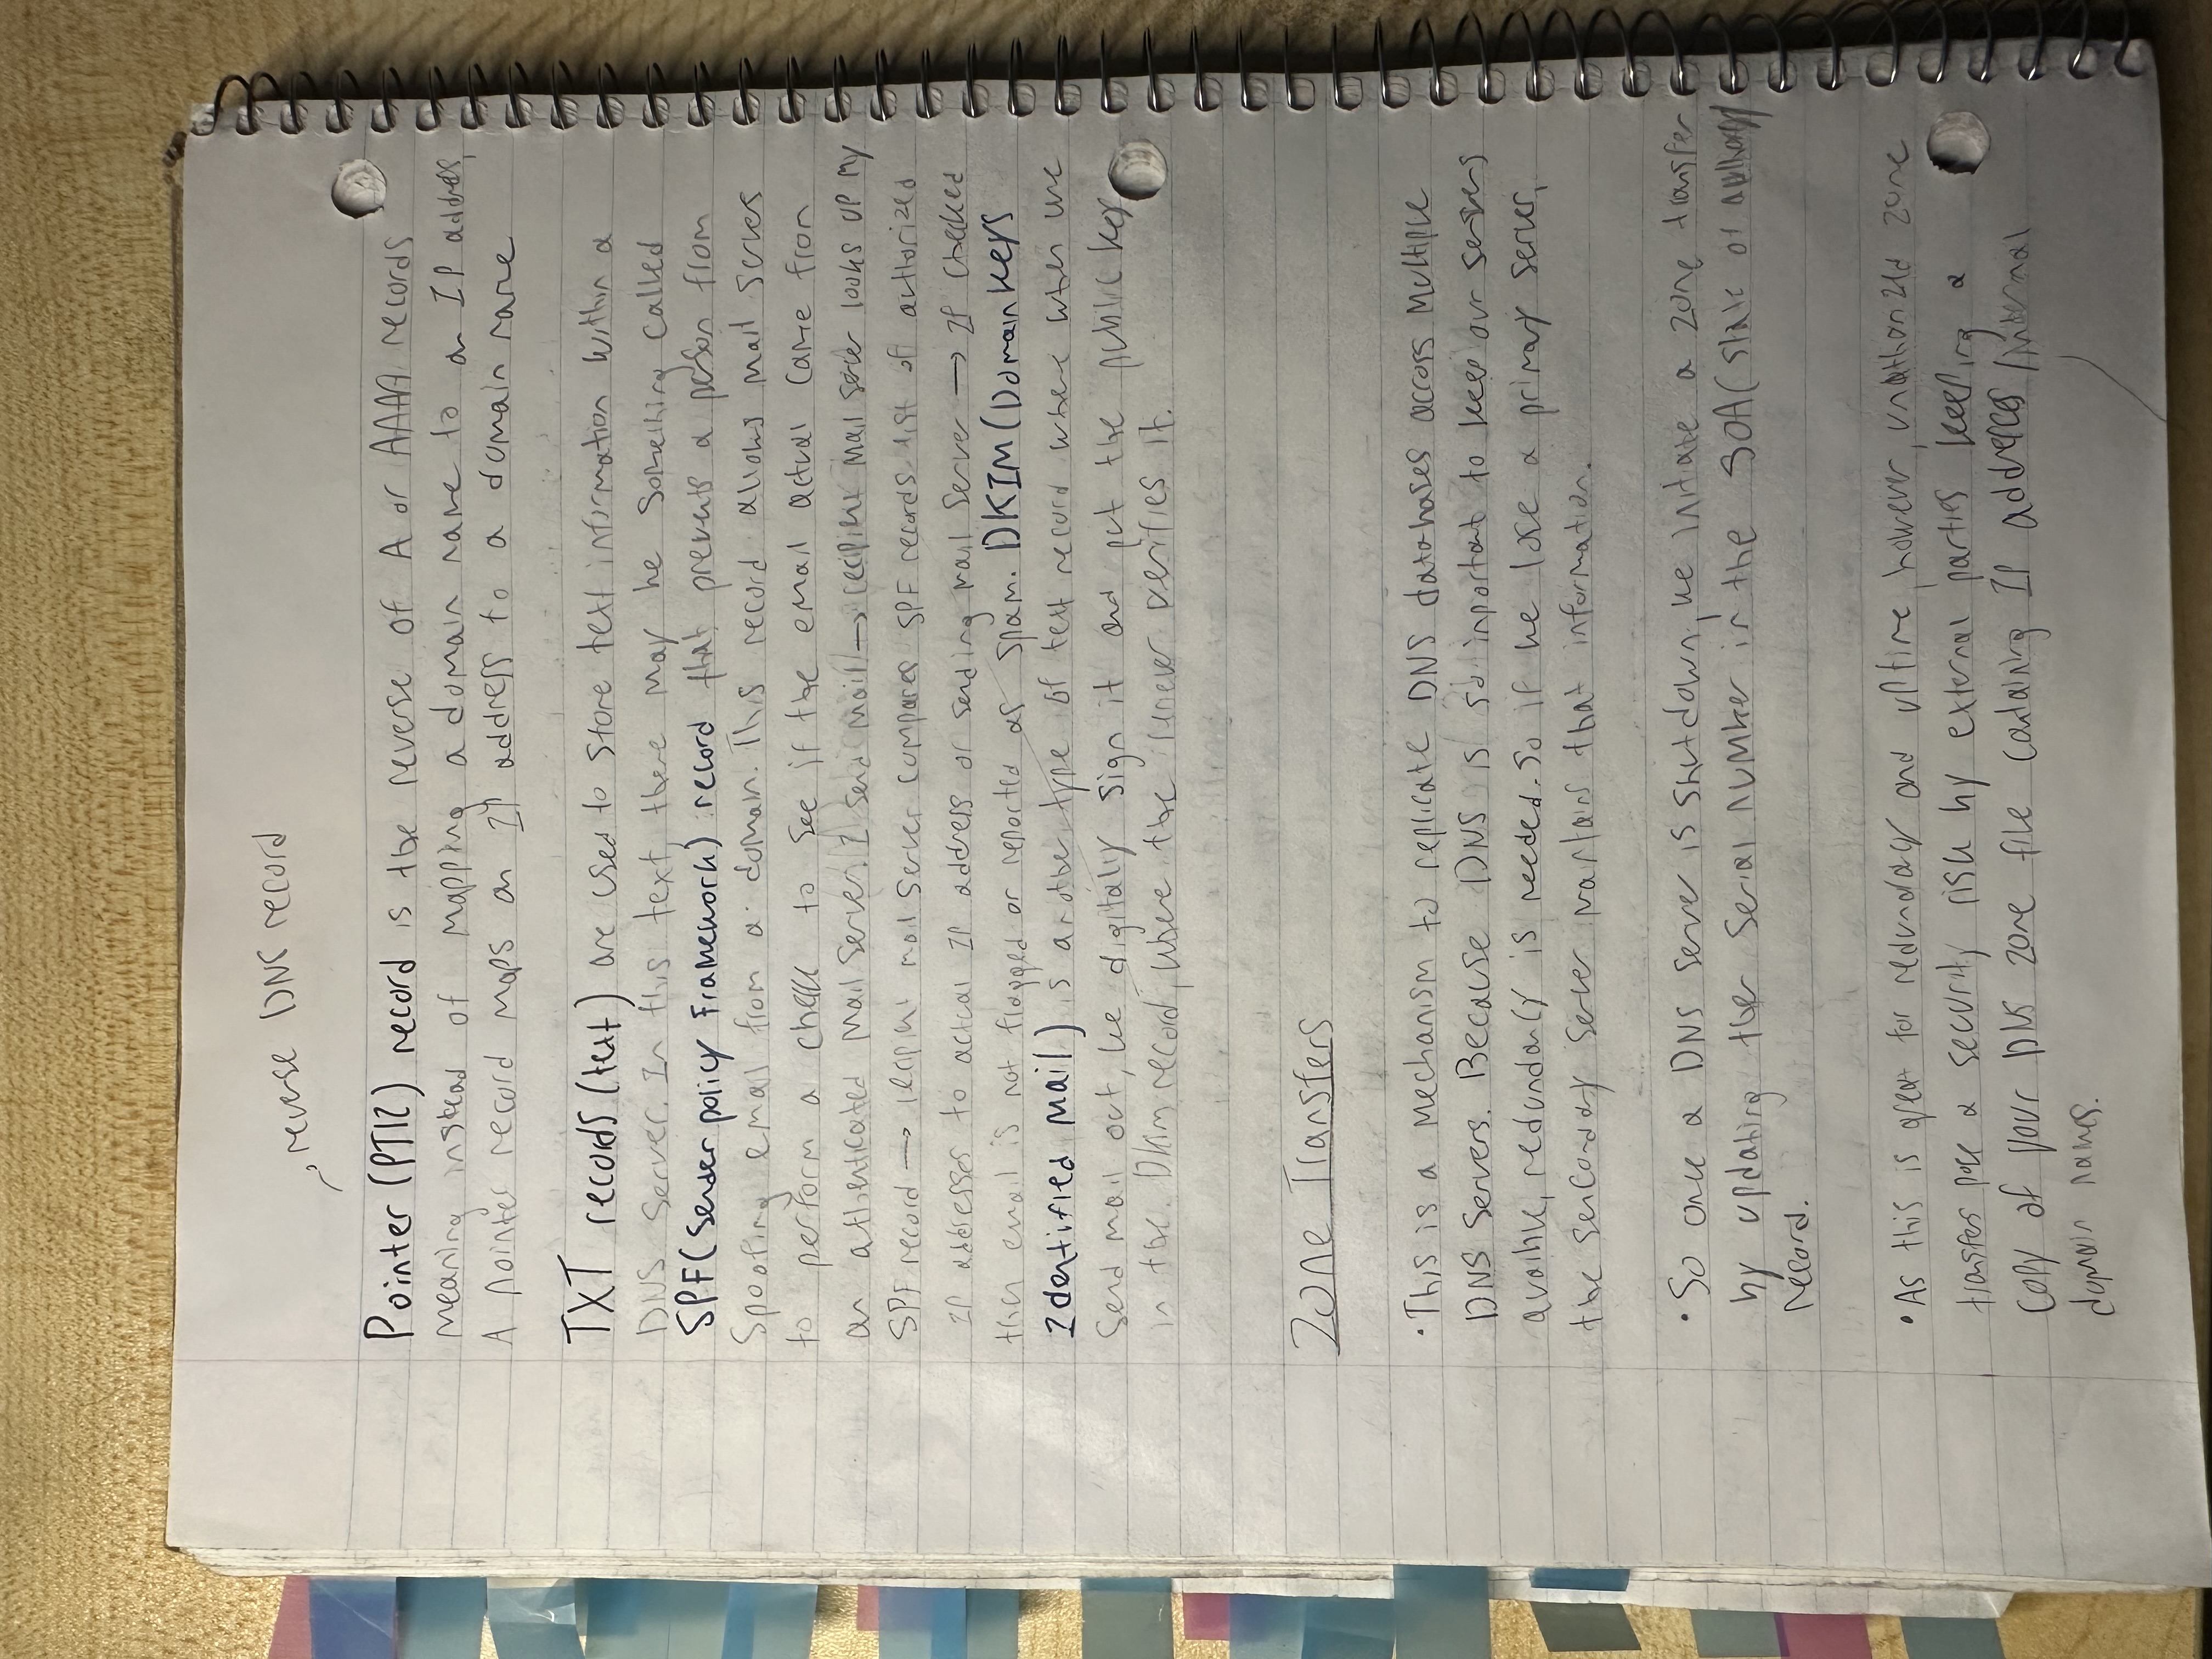 reverse DNS record
Pointer (PTR) record is the reverse of A or AAAA records
meaning instead of mapping a domain name to an IP address,
A Pointer record maps an IP address to a domain name
TXT records (text) are used to store text information within a
DNS server. In this text, there may be something called
SPF (Sender policy Framework) record that prevents a person from
spoofing email from a domain. This record allows mail servers
to perform a check to see if the email actual came from
an athenticated mail server. I send mail → recipient mail server looks up my
SPF record → recipient mail server compares SPF records list of authorized
IP addresses to actual IP address of sending mail server → If checked
then email is not flagged or reported as spam. DKIM (Domain keys
Identified Mail) is another type of text record where when we
send mail out, we digitally sign it and put the public key
in the DKim record, where the reciever verifies it.
Zone Transfers
• This is a mechanism to replicate DNS databases across multiple
DNS servers. Because DNS is so important to keep our servers
redundancy is needed. So if we lose a primary server,
the server maintains that information.
• So once a DNS server is shutdown, we initiate a zone transfer
by updating the serial number in the SOA (state of authority)
record.
• As this is great for redundacy and uptime, however, unathorized zone
transfers pose a security risk by external parties keeping a
copy of your DNS zone file containing IP addresses / internal
domain names.